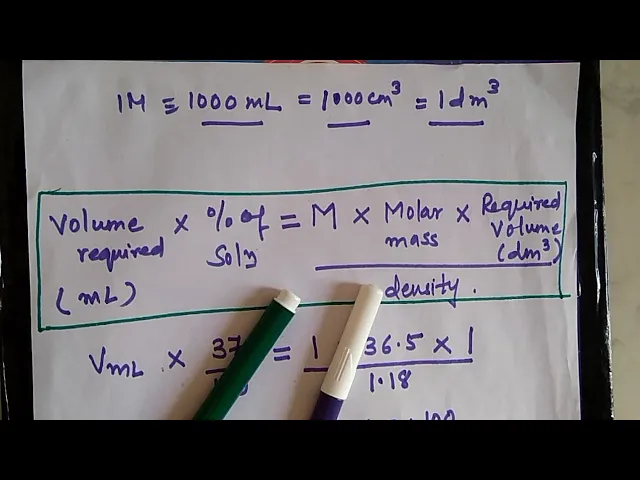 1M ≡ 1000 mL = 1000 cm³ = 1 dm³
Volume required (mL) × % of Soln = M × Molar mass × Required Volume (dm³)
density.
V mL × 37 = 1 36.5 × 1
1.18
100